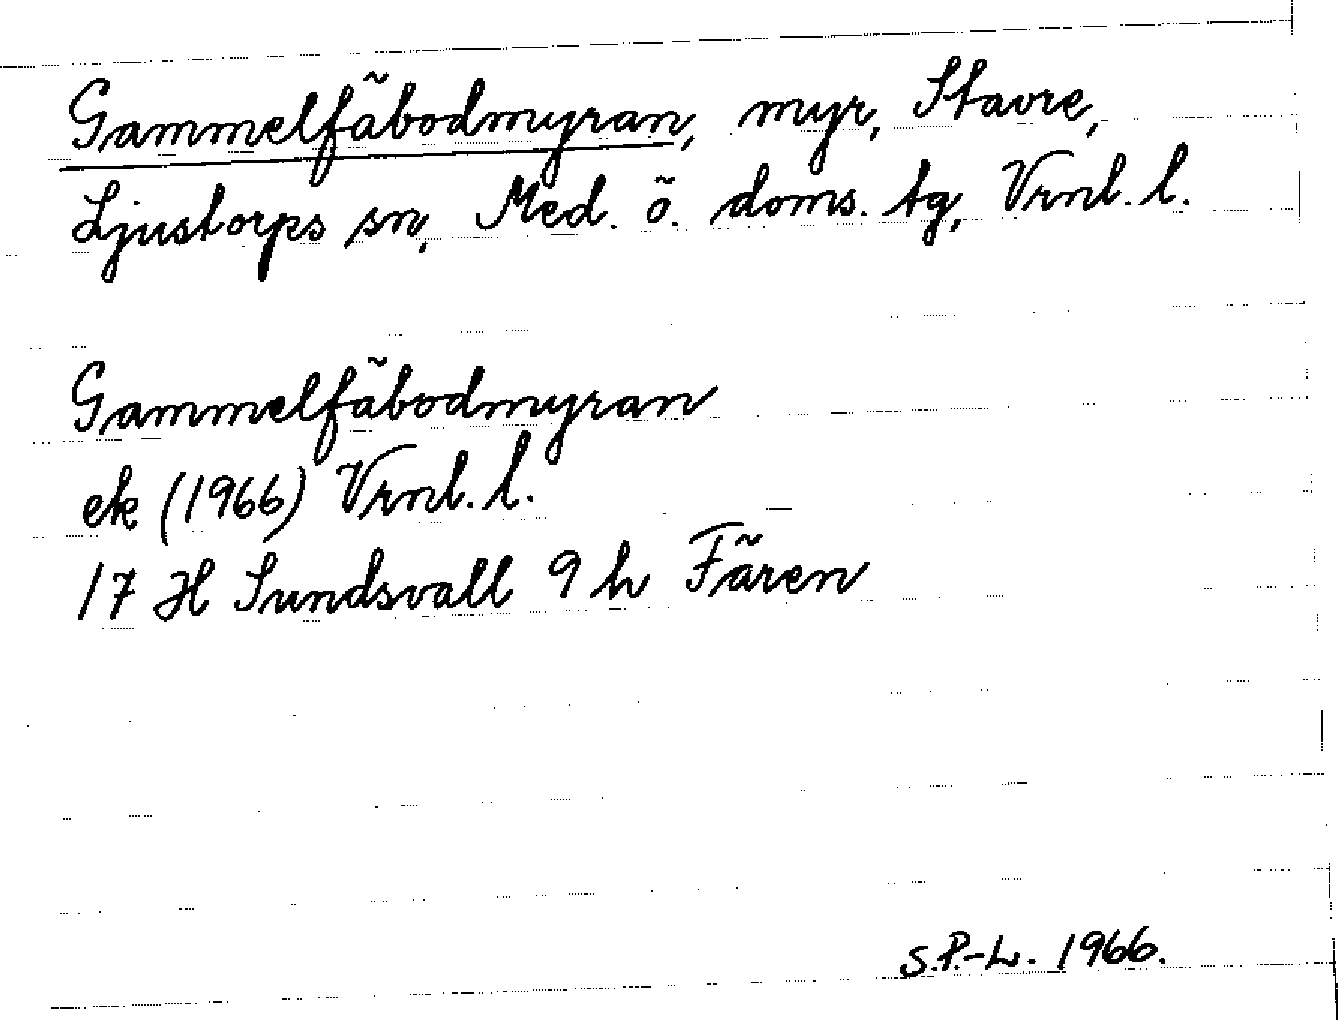 Gammelfäbodmyran, myr, Stavre,
Ljustorps sn, Med. ö. doms. tg, Vrnl. l.
Gammelfäbodmyran
ek (1966) Vrnl. l.
17 H Sundsvall 9 h Fären
S.P.-L. 1966.